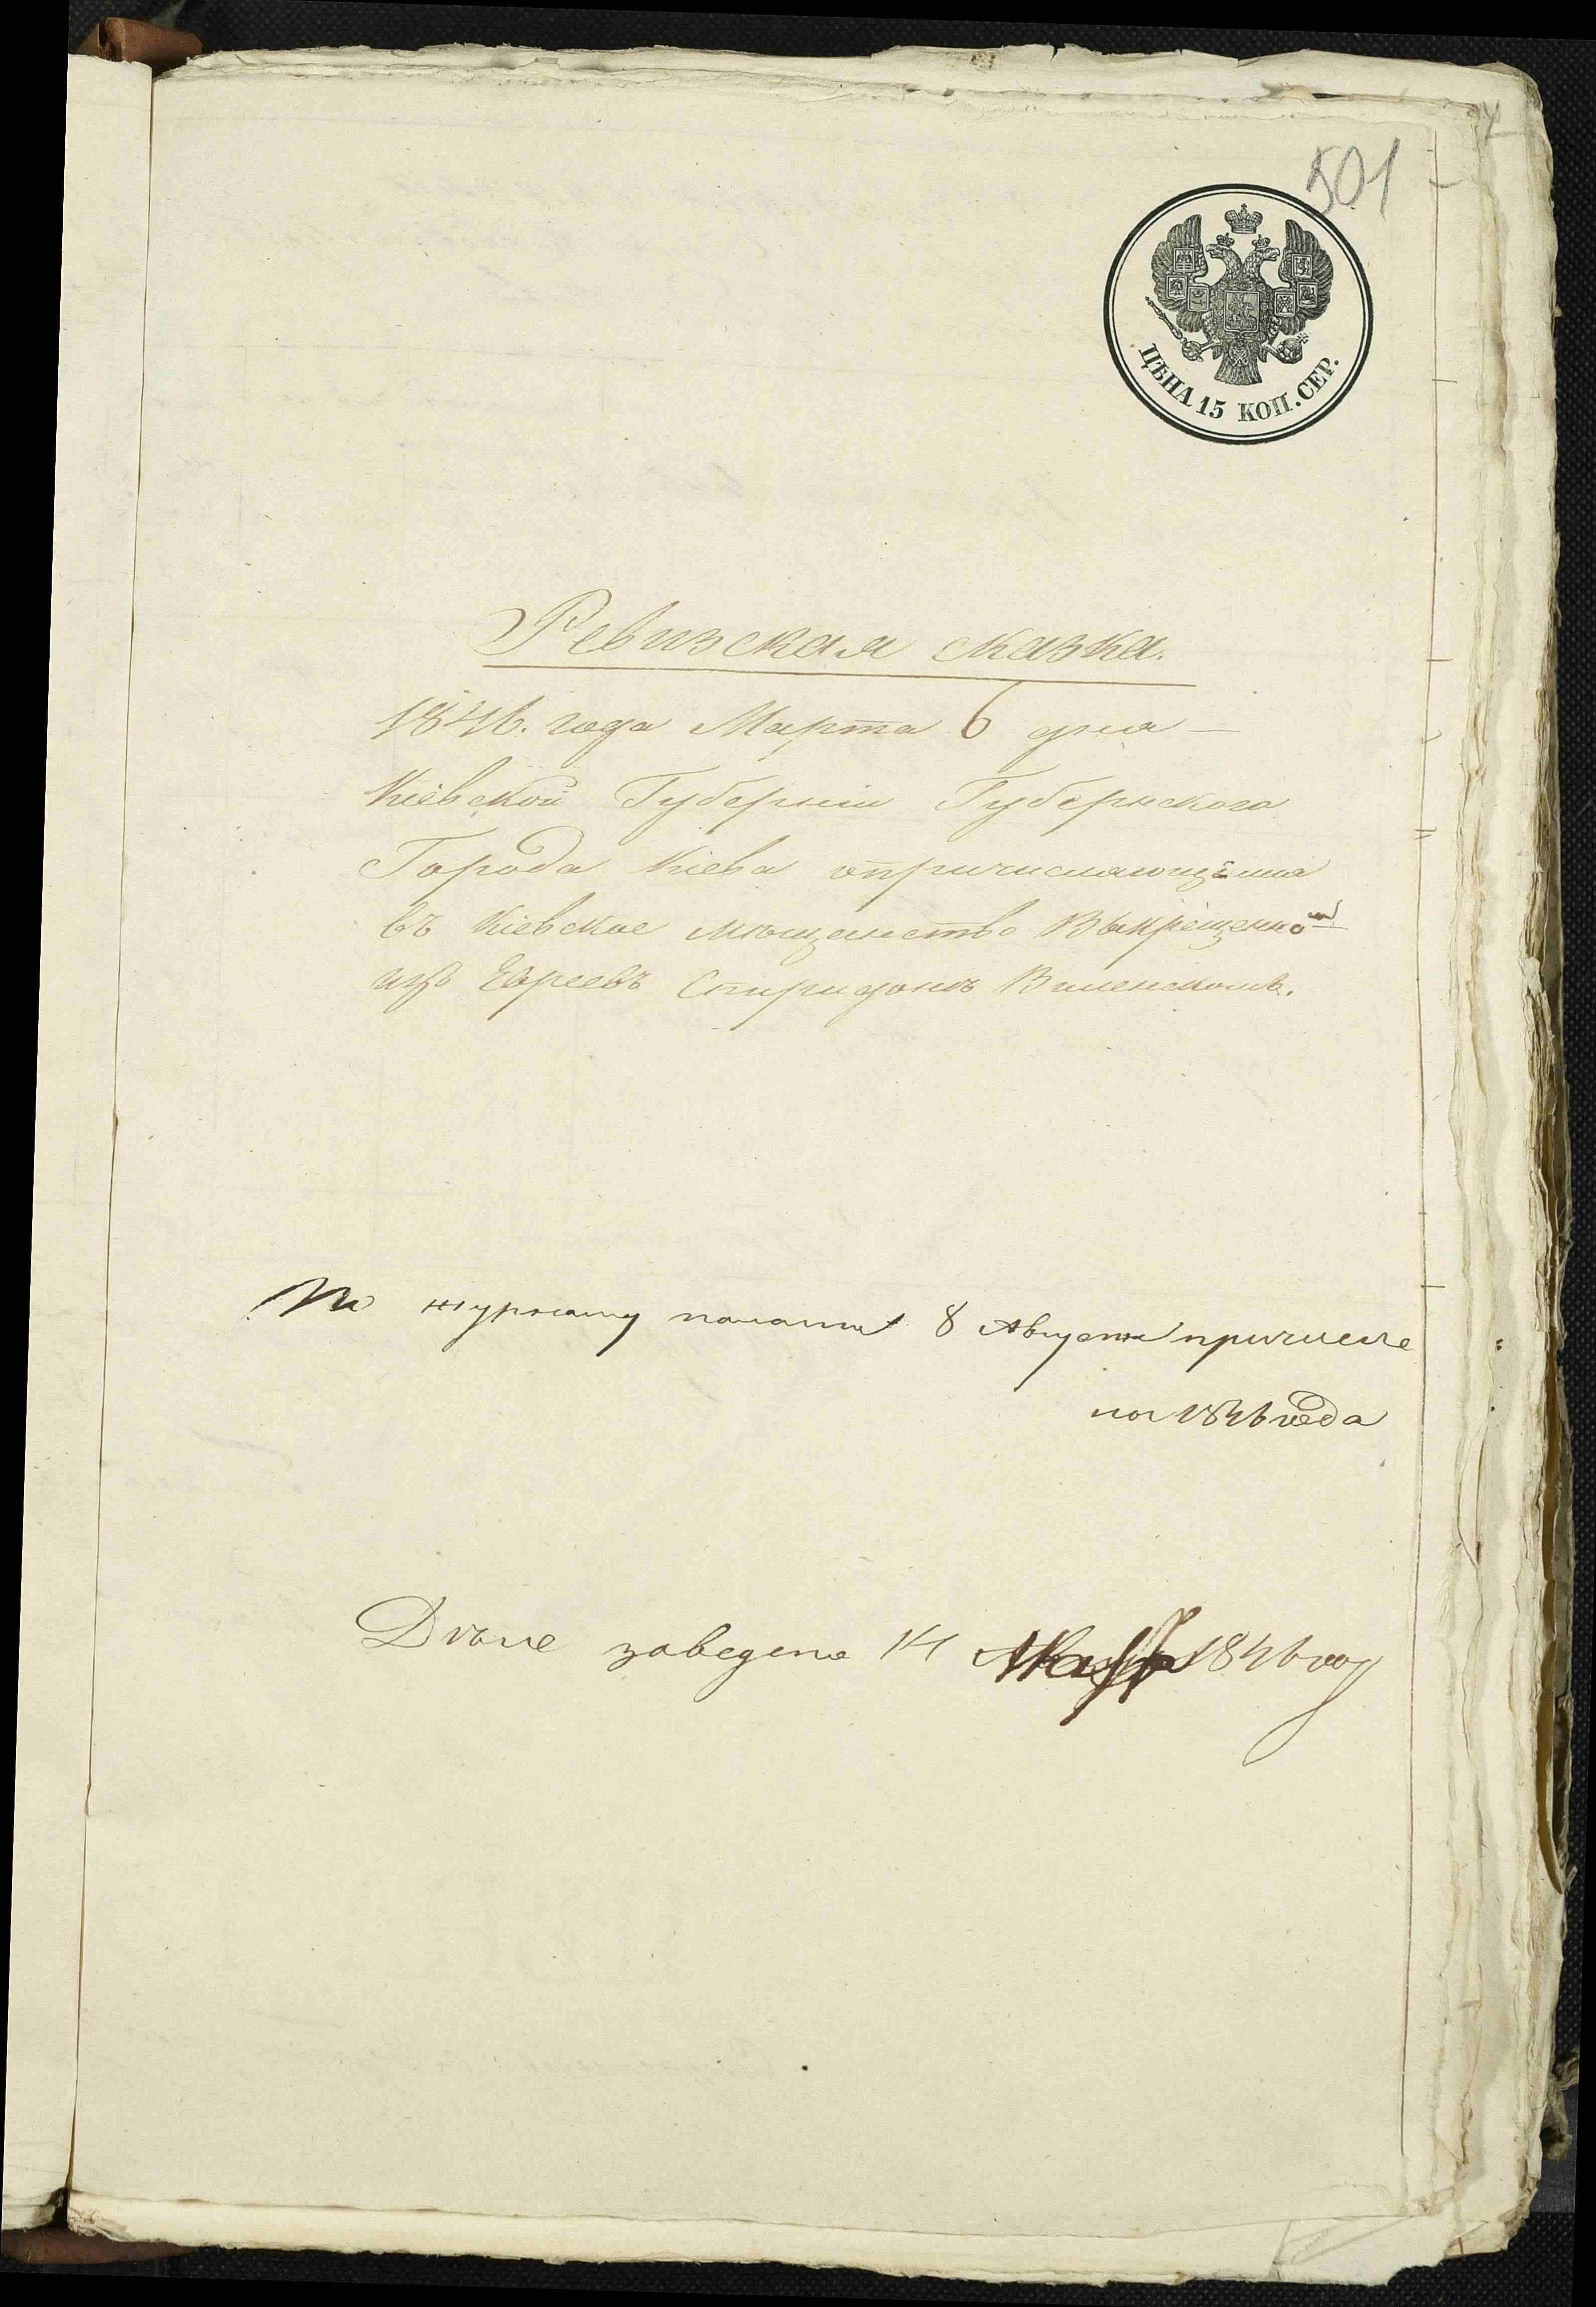 501
ЦѢНА 15 КОП. СЕР.
Ревизская сказка.
1846. года Марта 6 дня —
Кіевской Губерніи Губернского
Города Кіева опричисляющемся
въ Кіевское мѣщанство Выкрещенномъ
изъ Евреевъ Спиридонѣ Виленскомъ.
По журналу палаты 8 Августа причисле
по 1846 года
Дѣло заведено 14 1846 год